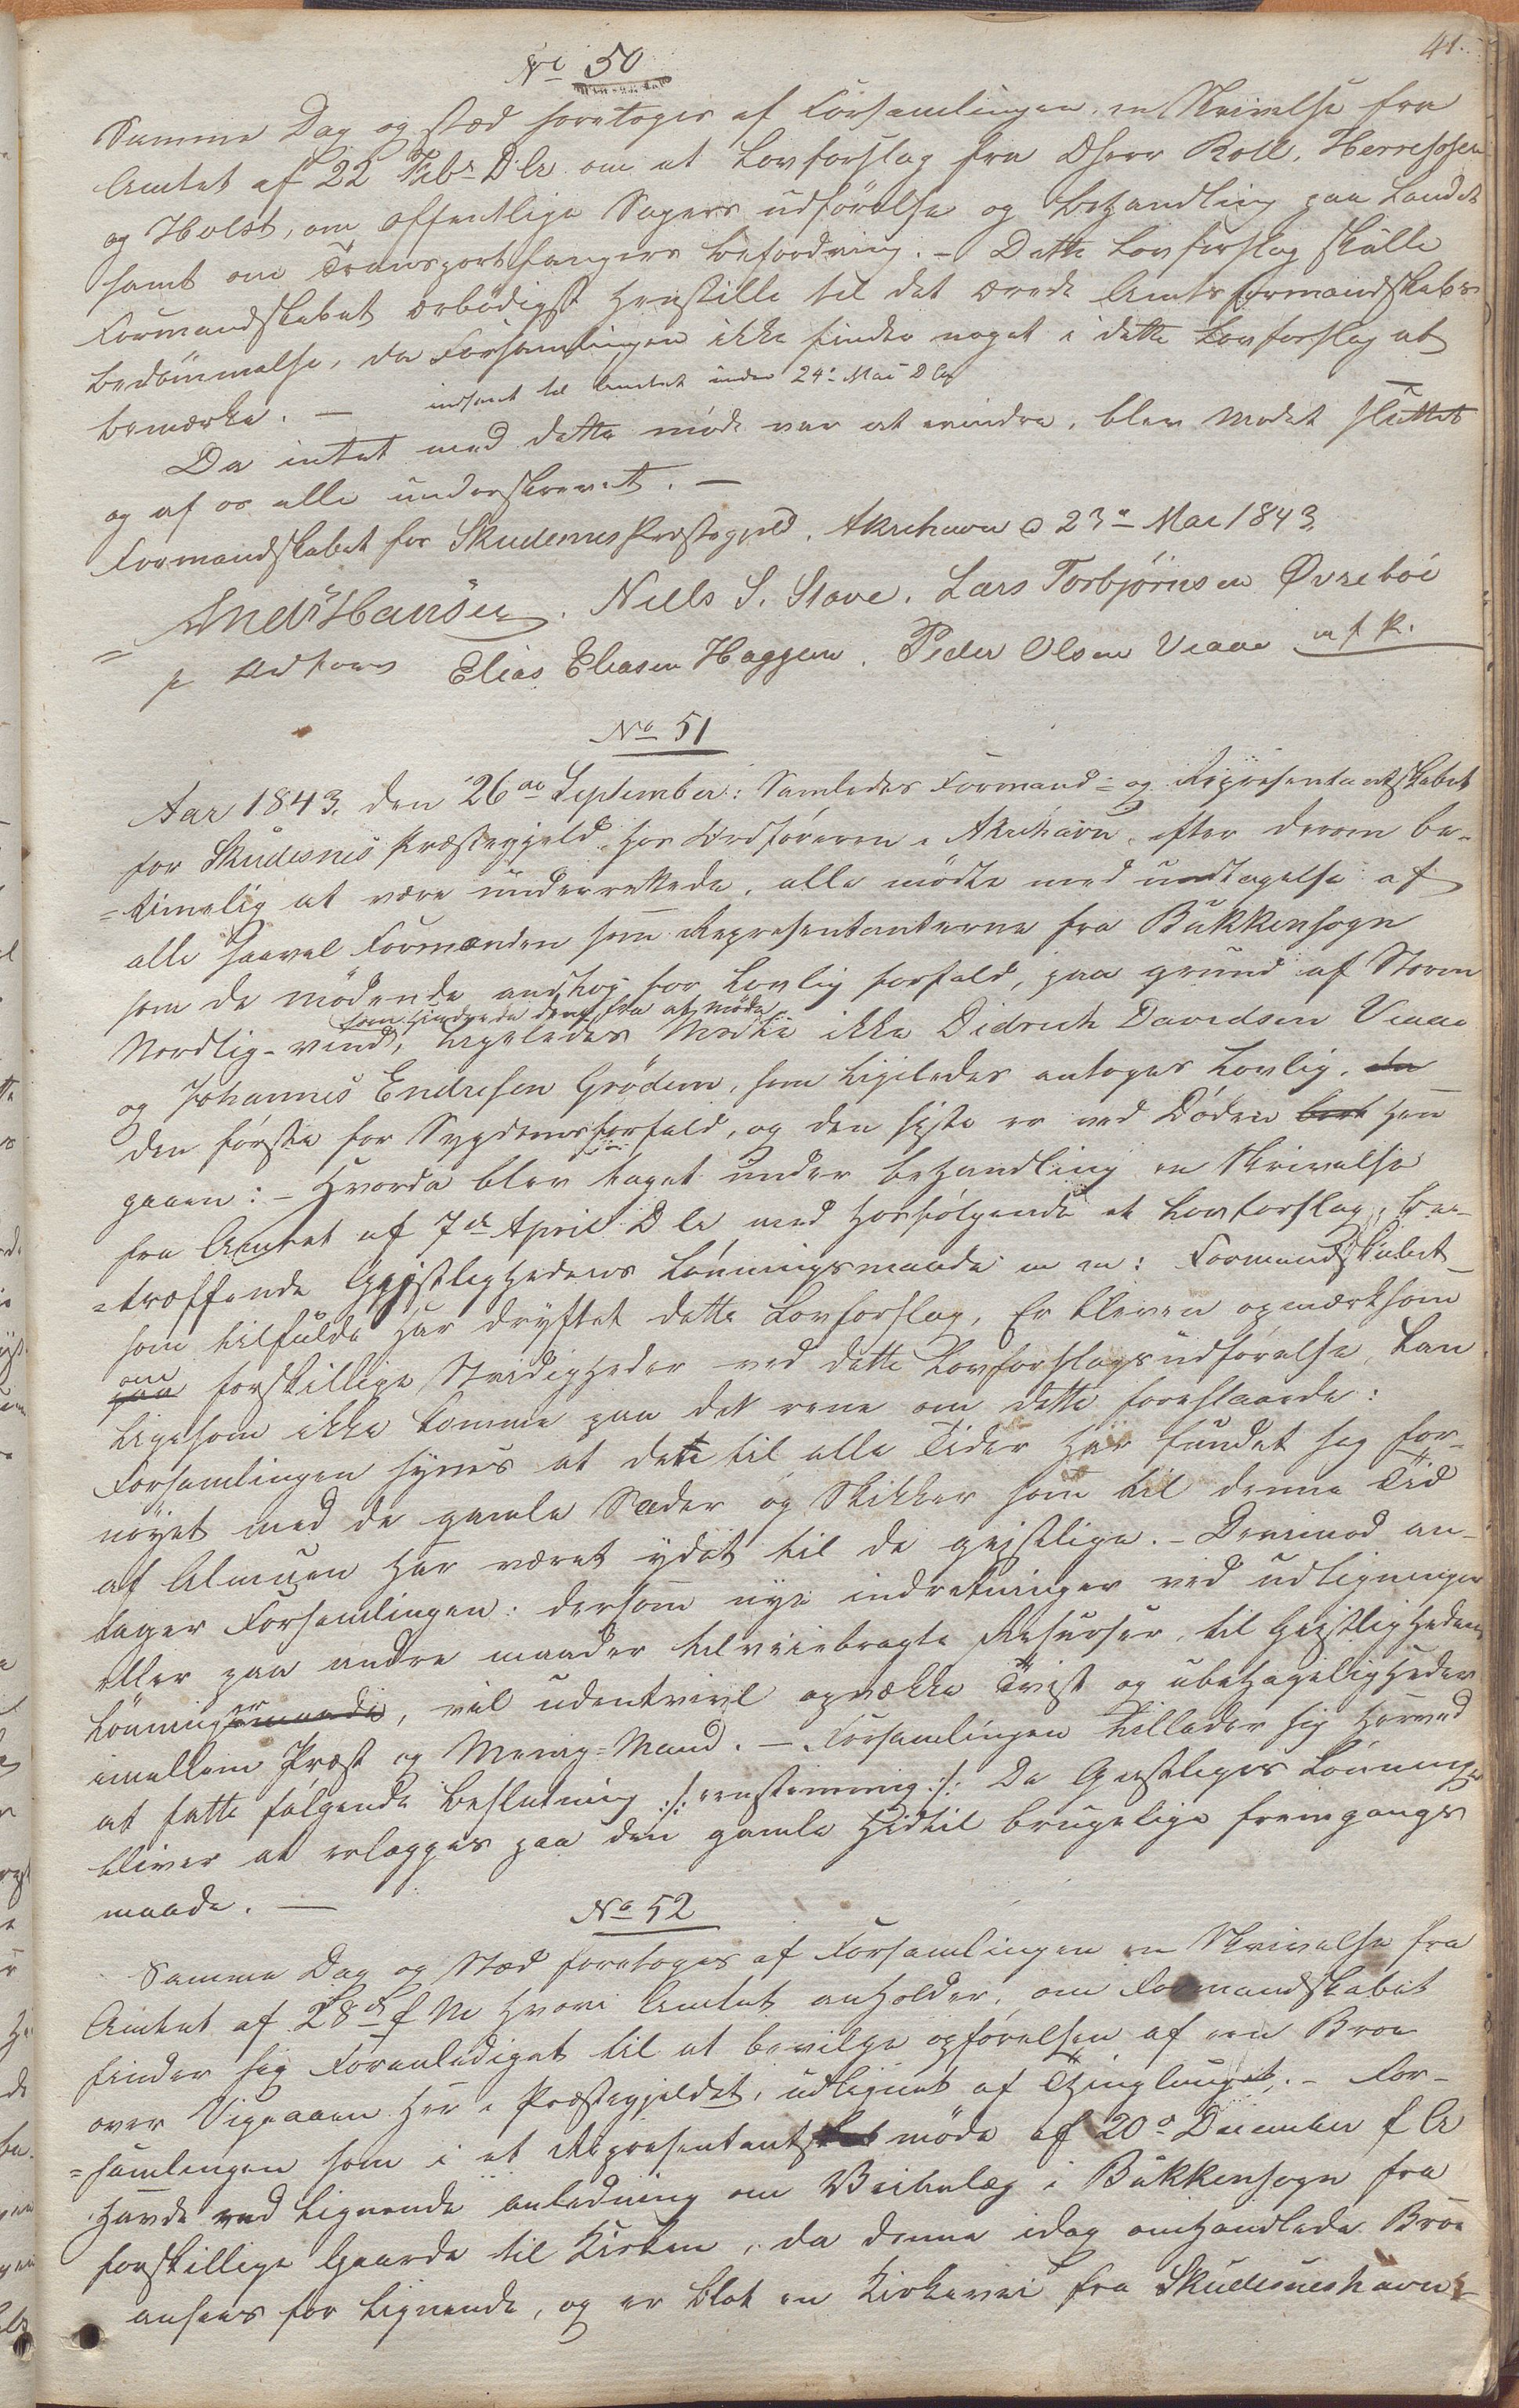 41.
No 50
Samme Dag og stæd foretoges af Forsamlingen, en Skrivelse fra
Amtet af 22 Febr D A om et Lovforslag fra DHerr Roll, Herresøen
og Holst, om offentlige Sagers udførelse og behandling paa Landet
samt om Transportfangers befordring. – Dette Lovforslag skulle
Formandskabet ærbødigst henstille til det ærede Amtsformandskabs
bedømmelse, da Forsamlingen ikke finder noget i dette Lovforslag at
bemærke. – indsent til Amtet inden 24: Mai D A
Da intet med dette møde var at erindre, blev Mødet sluttet
og af os alle underskrevet. –
Formandskabet for Skudenes Præstegjeld. Akrehavn d 23de Mai 1843
Ands Hansen. Niells S. Stave. Lars Torbjørnsen Øvrebøe
p Ordfører Elias Eliasen Haggem. Peder Olsen Veaae m f P.
No 51
Aar 1843, den 26de September: Samledes Formand- og Repræsentantskabet
for Skudesnes Præstegjeld hos Ordføreren i Akrehavn, efter derom be-
=timelig at være underrettede, alle mødte med undtagelse af
alle saavel Formænden som Repræsentanterne fra Bukkensogn
som de mødende andtog for Lovlig forfald, paa grund af Storm
Nordlig-vind, som hindrede dem fra at møde, ligeledes Mødte ikke Didrich Davidsen Veaae
og Johannes Endresen Grødem, som ligeledes antoges Lovlig, da
den første for Sygdomsforfald, og den siste er ved Døden bort hen
gaaen: – Hvorda blev taget under behandling en Skrivelse
fra Amtet af 7de April D A, med hosfølgende et Lovforslag, be-
=træffende Gejstlighedens Lønningsmaade m m: Formandskabet
som tilfulde har drøftet dette Lovforslag, Er bleven opmærksom
paa om forskillige Stridigheder ved dette Lovforslagsudførelse, kan
ligesom ikke komme paa det rene om dette foreslaaede:
Forsamlingen synes at dette til alle Tider har fundet sig for-
nøyet med de gamle Sæder og Skikker som til denne Tid
af Almuen har været ydet til de gejstlige. – Derimod an-
tager Forsamlingen: dersom nye indretninger ved udligninger
eller paa andre maader tilveiebragte Resurser, til Gejstlighedens
Lønninger maade, vil udentvivl opvække Tvist og ubehageligheder
imellem Præst og Menig-Mand. – Forsamlingen tillader sig herved
at fatte følgende beslutning :/: eenstemmig :/: De Geistliges Lønninger
bliver at erlægges paa den gamle hidtil brugelige fremgangs
maade. –
No 52
Samme Dag og Stæd foretoges af Forsamlingen en Skrivelse fra
Amtet af 28de f M hvori Amtet anholder, om Formandskabet
finder sig Foranlediget til at bevilge opførelsen af een Broe
over Vigeaaen her i Præstegjeldet, udlignet af Thinglauget. – For-
=samlingen som i et Repræsentantskabsmøde af 20de December f A
havde ved lignende anledning om Veianlæg i Bukkensogn fra
forskillige Gaarde til Kirken, da denne idag omhandlede Broe
ansees for lignende, og er blot en Kirkevei fra Skudesneshavn